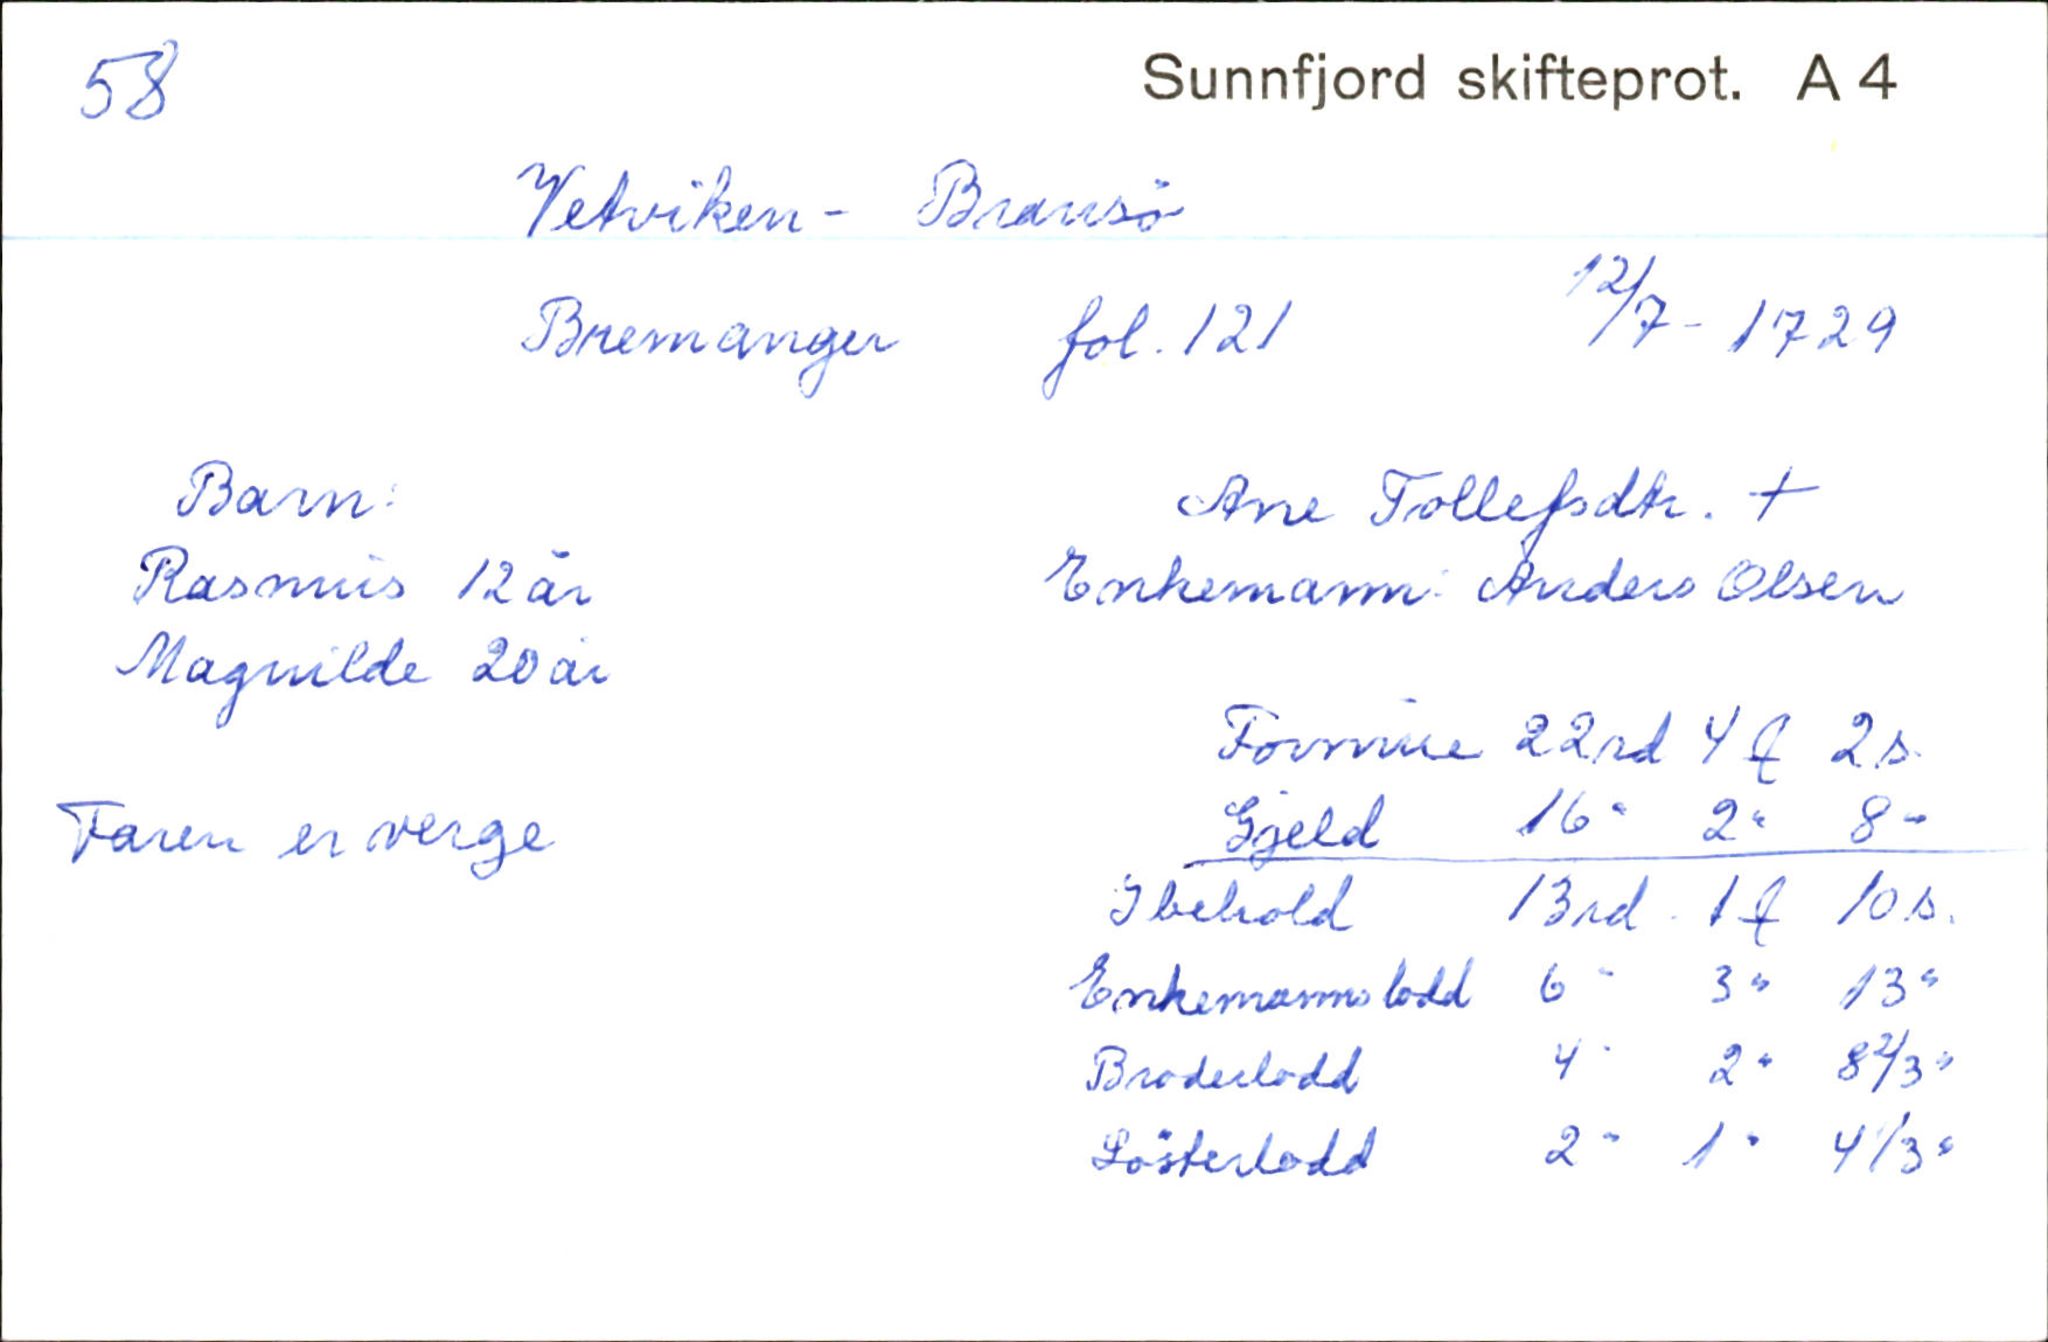 58
Sunnfjord skifteprot. A 4
Vetviken - Bransö
Bremanger fol. 121 12/7 - 1729
Barn:
Rasmus 12 år
Magnilde 20 år
Faren er verge
Ane Tollefsdtr. +
Enkemann: Anders Olsen
Formue 22 rd 4 ₰ 2 s.
Gjeld 16 " 2 " 8 "
Ibehold 13 rd. 1 ₰ 10 s.
Enkemannslodd 6 " 3 " 13 "
Broderlodd 4 " 2 " 8 2/3 "
Sösterlodd 2 " 1 " 4 1/3 "